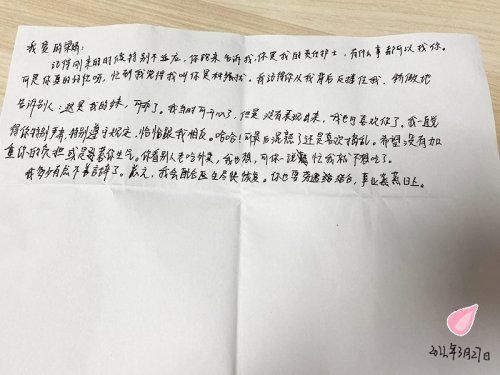 我爱的梁琦:
记得刚来的时候特别不适应,你跑来告诉我,你是我的责任护士,有什么事都可以找你。
可是你真的好忙呀,忙到我觉得我叫你是种打扰。我记得你从我背后反搂住我,骄傲地
告诉别人:这是我的妹,可乖了。我当时可开心了,但是没有表现出来,我也可喜欢你了。我一直觉
得你特别严肃,特别遵守规定,恰恰跟我相反。哈哈!可最后混熟了还是喜欢捣乱。希望没有加
重你的负担或是惹你生气。你看别人老吃外卖,我也想,可你一说 我就不想吃了。
我多少有点不善言辞了。总之,我会配合医生尽快恢复。你也要 ,事业蒸蒸日上。
2022年3月27日